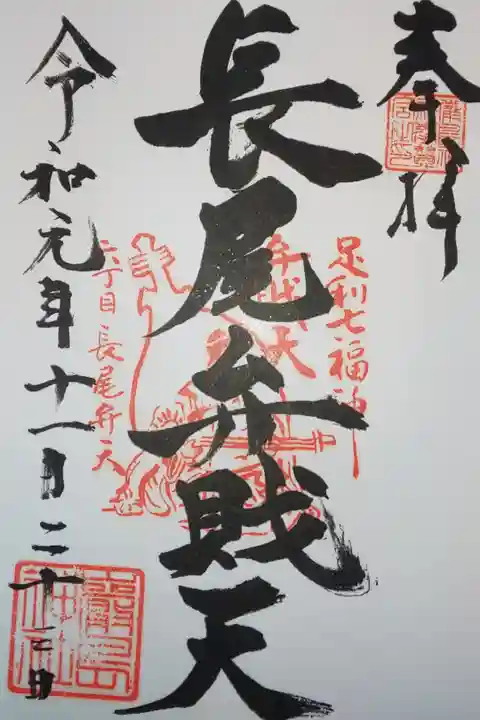 奉拝
足利七福神
弁財天
長尾弁財天
六丁目長尾弁天
令和元年十一月二十三日
嚴島神社